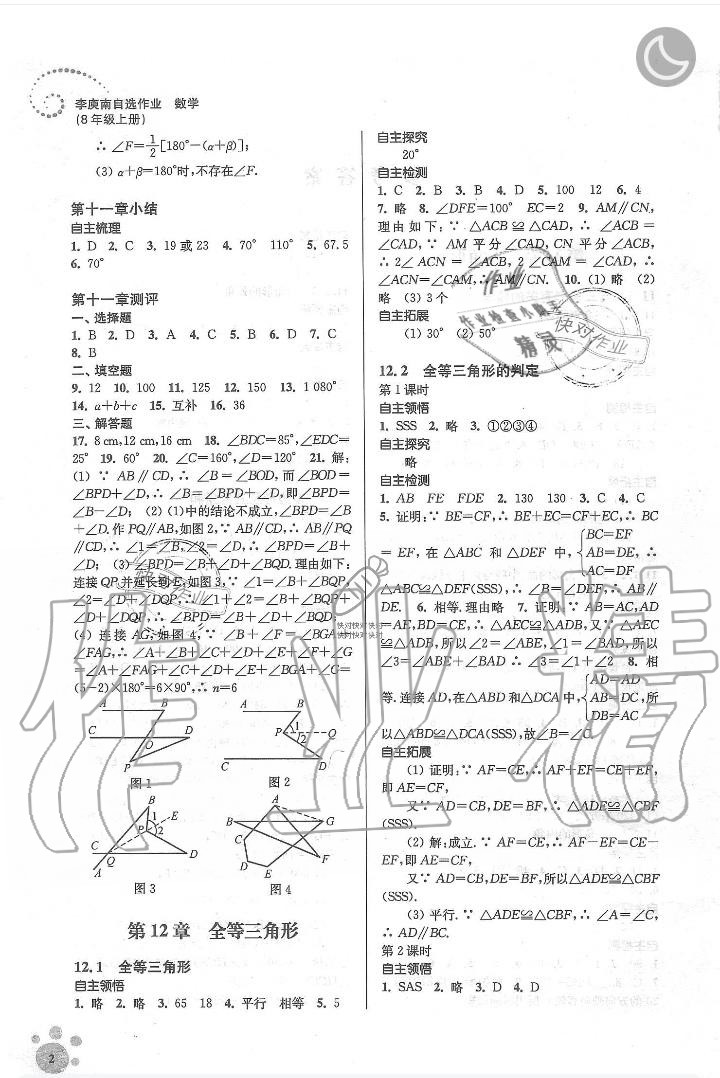 李庾南自选作业 数学
(8年级上册)
∴ ∠F=1/2[180°−(α+β)];
(3) α+β=180°时,不存在∠F.
第十一章小结
自主梳理
1. D 2. C 3. 19或23 4. 70° 110° 5. 67.5
6. 70°
第十一章测评
一、选择题
1. B 2. D 3. A 4. C 5. B 6. D 7. C
8. B
二、填空题
9. 12 10. 100 11. 125 12. 150 13. 1 080°
14. a+b+c 15. 互补 16. 36
三、解答题
17. 8 cm,12 cm,16 cm 18. ∠BDC=85°,∠EDC=
25° 19. 60° 20. ∠C=160°,∠D=120° 21. 解:
(1) ∵ AB∥CD,∴ ∠B=∠BOD,而∠BOD=
∠BPD+∠D,∴ ∠B=∠BPD+∠D,即∠BPD=
∠B−∠D; (2) (1)中的结论不成立,∠BPD=∠B
+∠D.作PQ∥AB,如图2,∵ AB∥CD,∴ AB∥PQ
∥CD,∴ ∠1=∠B,∠2=∠D,∴ ∠BPD=∠B+
∠D; (3) ∠BPD=∠B+∠D+∠BQD.理由如下:
连接QP并延长到E,如图3,∵ ∠1=∠B+∠BQP,
∠2=∠D+∠DQP,∴ ∠1+∠2=∠B+∠BQP+
∠D+∠DQP,∴ ∠BPD=∠B+∠D+∠BQD;
(4) 连接AG,如图4,∵ ∠B+∠F=∠BGA+
∠FAG,∴ ∠A+∠B+∠C+∠D+∠E+∠F+∠G
=∠A+∠FAG+∠C+∠D+∠E+∠BGA+∠G=
(5−2)×180°=6×90°,∴ n=6
A B
C D
O
P
图1
A B
P 1 2 Q
C D
图2
B
1 E
P 2
C Q D
A
图3
A
B G
C
D E F
图4
第12章 全等三角形
12.1 全等三角形
自主领悟
1. 略 2. 略 3. 65 18 4. 平行 相等 5. 5
2
自主探究
20°
自主检测
1. C 2. B 3. B 4. D 5. 100 12 6. 4
7. 略 8. ∠DFE=100° EC=2 9. AM∥CN,
理由如下:∵ △ACB≌△CAD,∴ ∠ACB=
∠CAD,∵ AM平分∠CAD,CN平分∠ACB,
∴ 2∠ACN=∠ACB,2∠CAM=∠CAD,∴
∠ACN=∠CAM,∴ AM∥CN. 10. (1) 略 (2)
略 (3) 3个
自主拓展
(1) 30° (2) 50°
12.2 全等三角形的判定
第1课时
自主领悟
1. SSS 2. 略 3. ①②③④
自主探究
略
自主检测
1. AB FE FDE 2. 130 130 3. C 4. C
5. 证明:∵ BE=CF,∴ BE+EC=CF+EC,∴ BC
=EF,在△ABC和△DEF中,{BC=EF
AB=DE,∴
AC=DF
△ABC≌△DEF(SSS),∴ ∠B=∠DEF,∴ AB∥
DE. 6. 相等.理由略 7. 证明:∵ AB=AC,AD
=AE,BD=CE,∴ △AEC≌△ADB,又∵ △AEC
≌△ADB,所以∠2=∠ABE,∠1=∠BAD,所以
∠3=∠ABE+∠BAD ∴ ∠3=∠1+∠2 8. 相
等.连接AD,在△ABD和△DCA中,{AD=AD
AB=DC,所
DB=AC
以△ABD≌△DCA(SSS),故∠B=∠C.
自主拓展
(1) 证明:∵ AF=CE,∴ AF+EF=CE+EF,
即AE=CF,
又∵ AD=CB,DE=BF,∴ △ADE≌△CBF
(SSS).
(2) 解:成立.∵ AF=CE,∴ AF−EF=CE−
EF,即AE=CF,
又∵ AD=CB,DE=BF,∴ △ADE≌△CBF
(SSS).
(3) 平行.∵ △ADE≌△CBF,∴ ∠A=∠C,
∴ AD∥BC.
第2课时
自主领悟
1. SAS 2. 略 3. D 4. D
作业
作业检查小助手
精灵
快对作业
作业精